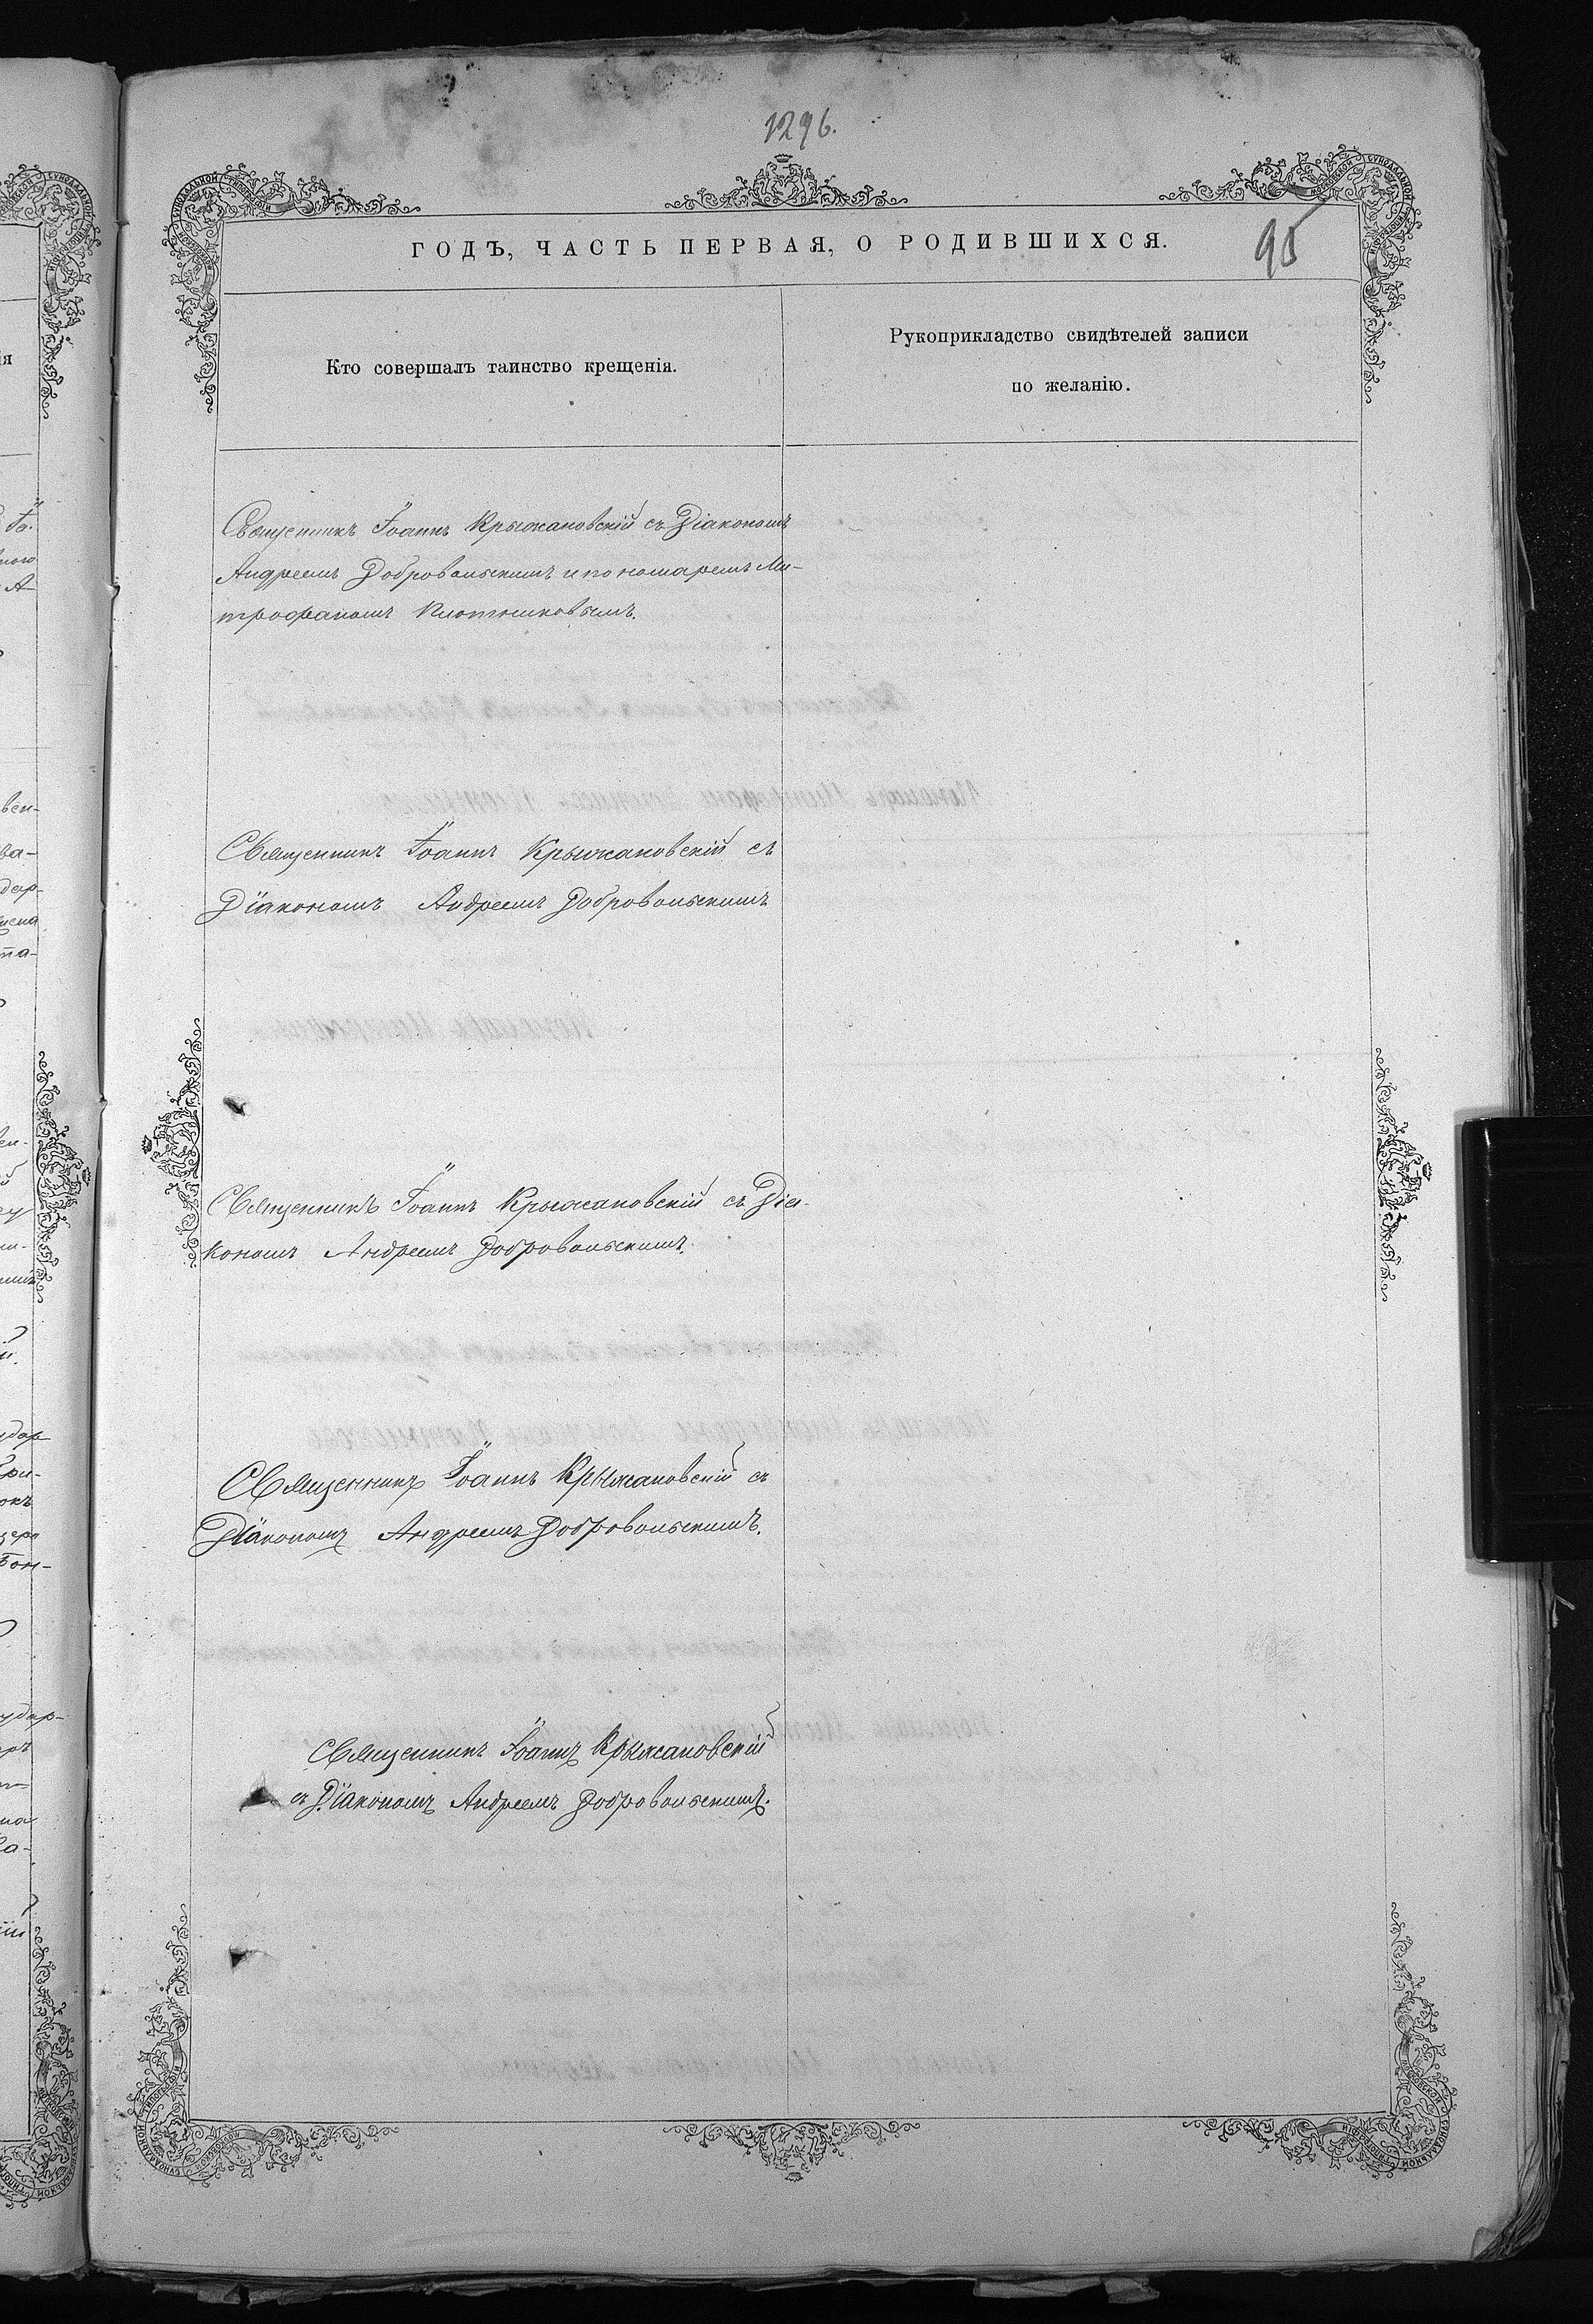 1296.
ГОДЪ, ЧАСТЬ ПЕРВАЯ, О РОДИВШИХСЯ.
95
Кто совершалъ таинство крещенія.
Рукоприкладство свидѣтелей записи
по желанію.
Священникъ Іоаннъ Крыжановскій съ Діакономъ
Андреемъ Добровольскимъ и пономаремъ Ми-
трофаномъ Плотниковымъ.
Священникъ Іоаннъ Крыжановскій съ
Діакономъ Андреемъ Добровольскимъ
Священникъ Іоаннъ Крыжановскій съ Діа-
кономъ Андреемъ Добровольскимъ.
Священникъ Іоаннъ Крыжановскій съ
Діакономъ Андреемъ Добровольскимъ.
Священникъ Іоаннъ Крыжановскій
съ Діакономъ Андреемъ Добровольскимъ.